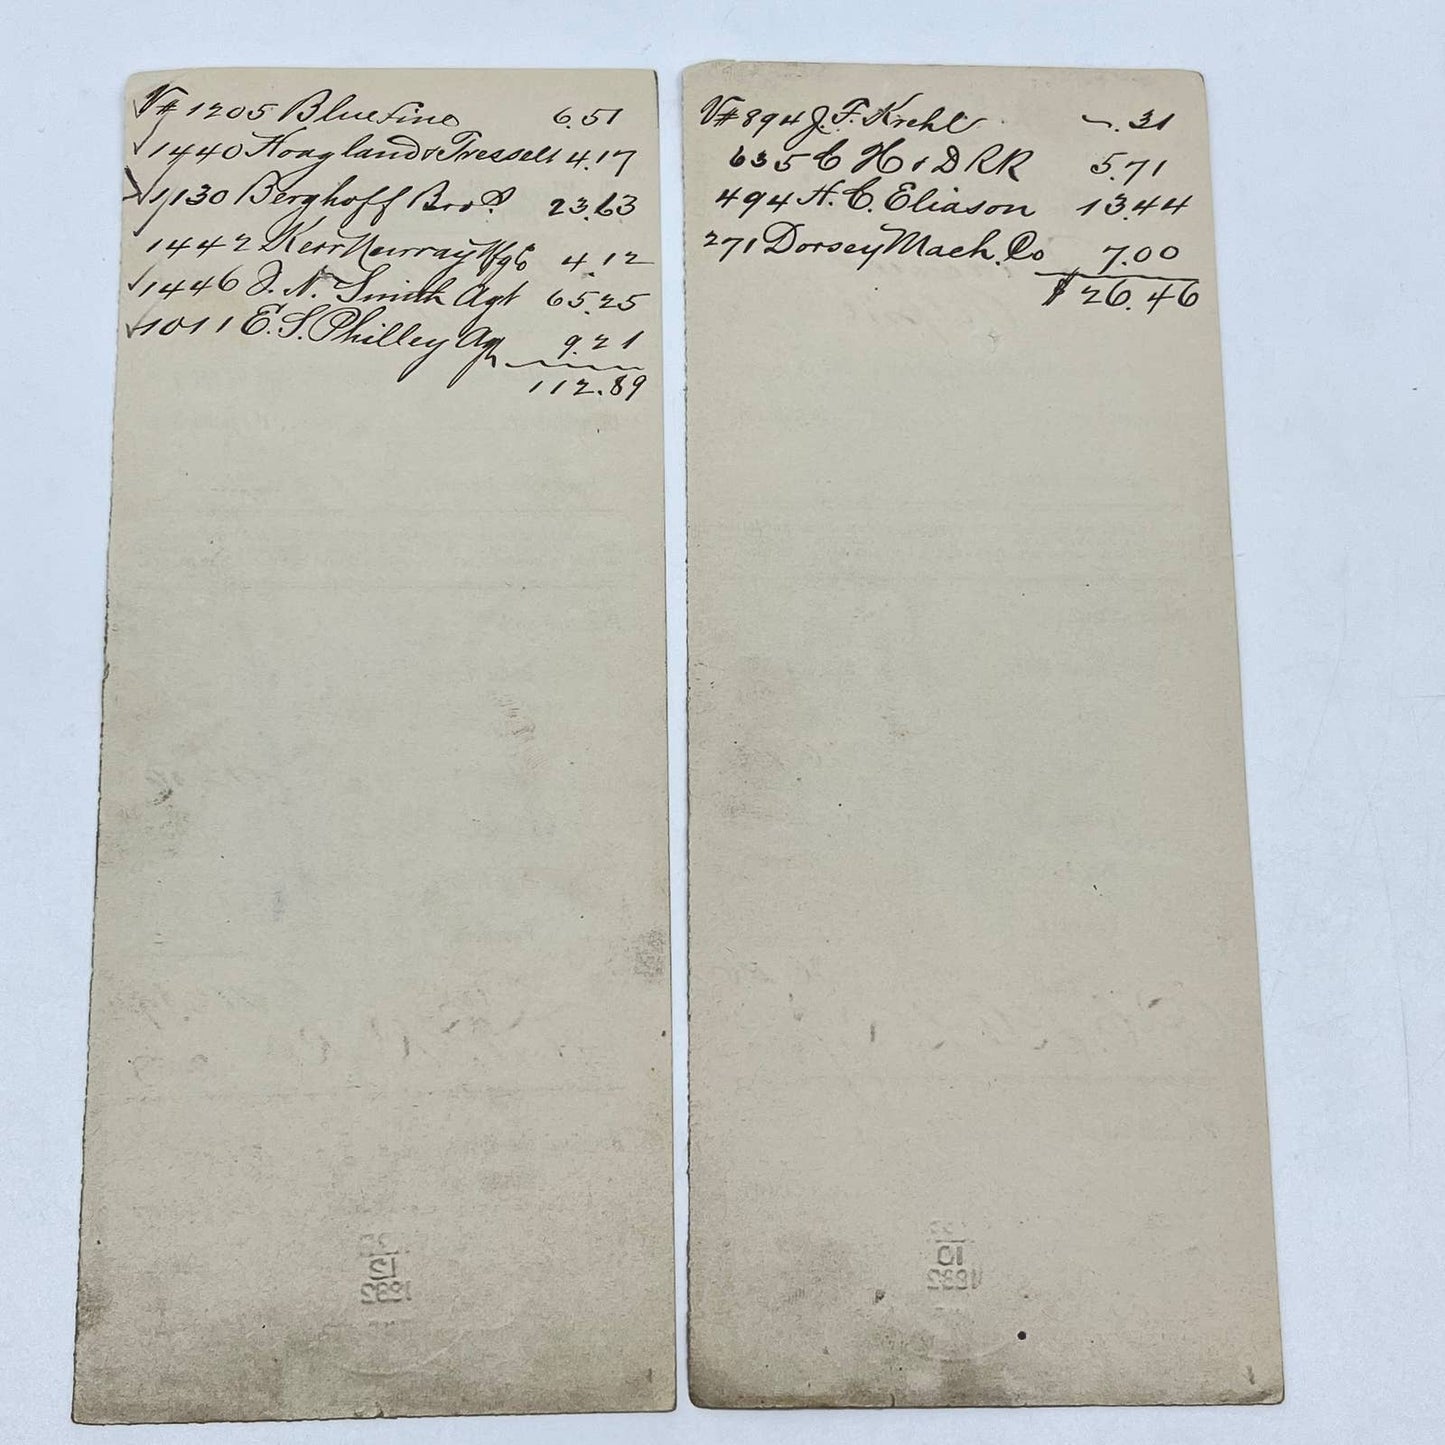 V# 1205 Blue Line 6.51
1440 Hoagland & Tressell 4.17
1130 Berghoff Bros. 23.63
1442 Kerr Murray Mfg Co 4.12
1446 J. N. Smith Agt 65.25
1011 E. S. Philley Agt 9.21
112.89
V# 894 J. F. Krehl .31
635 C H & D RR 5.71
494 A. C. Eliason 13.44
271 Dorsey Mach. Co 7.00
$ 26.46